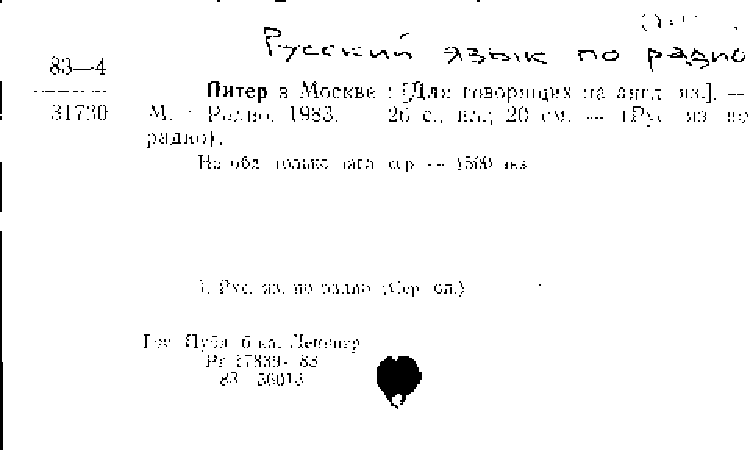 Русский язык по радио
83—4
31730
Питер в Москве : [Для говорящих на англ. яз.]. —
М. : Радио, 1983. — 26 с., ил.; 20 см. — (Рус. яз. по
радио).
На обл. только загл. сер. — 1500 экз.
1. Рус. яз. по радио (Сер. сл.)
Гос. Публ. б-ка. Ленингр.
83